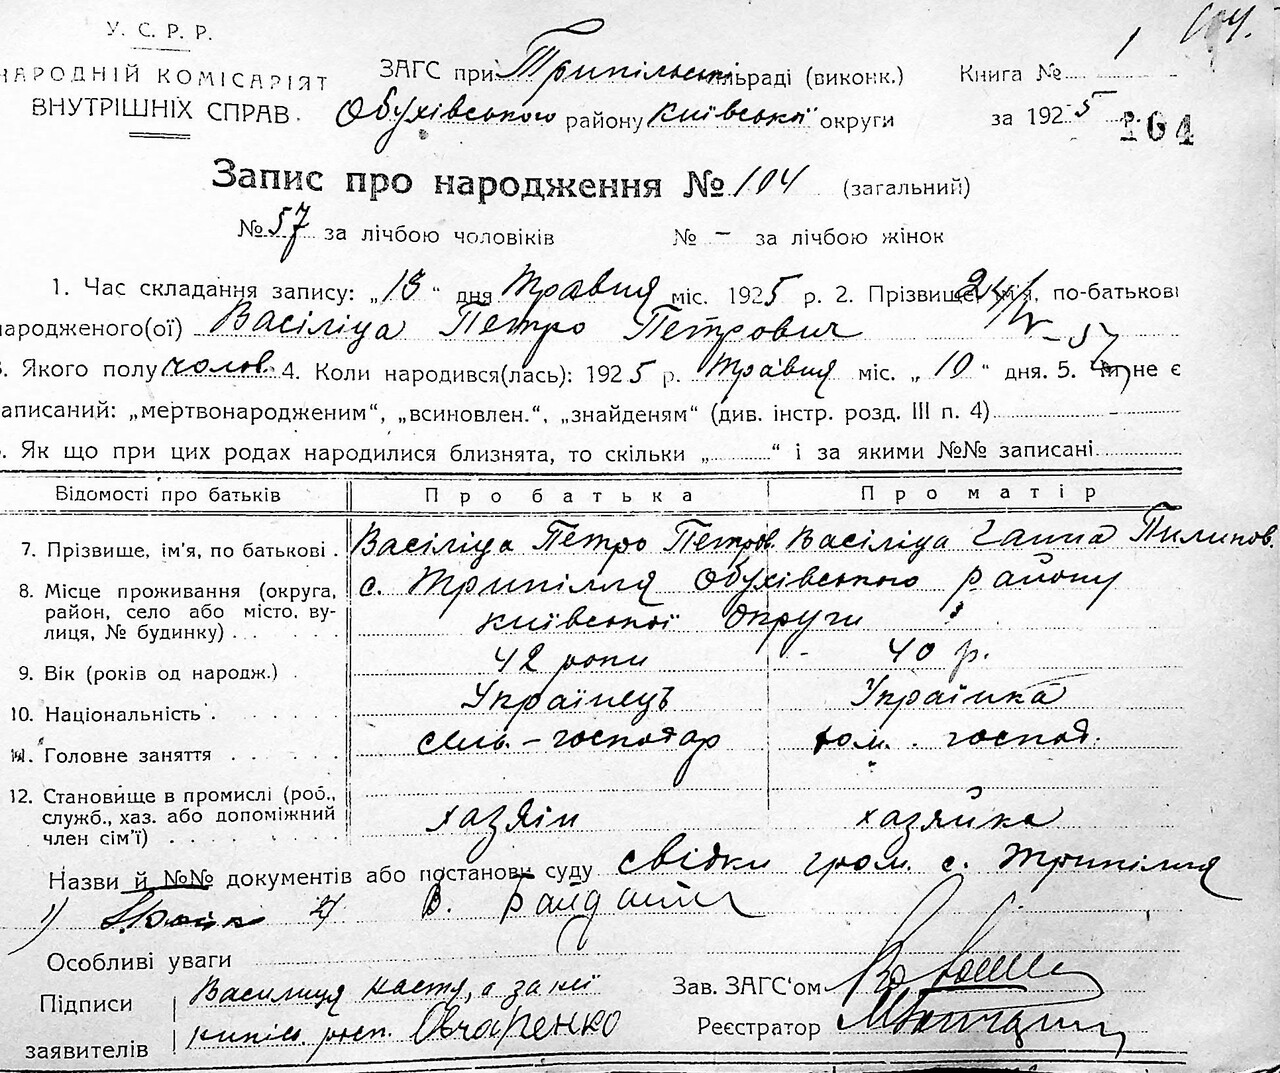 У. С. Р. Р.
НАРОДНІЙ КОМІСАРІЯТ
ВНУТРІШНІХ СПРАВ.
ЗАГС при Трипільскі льраді (виконк.)
Обухівського району Київської округи
Книга № 1
за 1925 р.
104
Запис про народження № 104 (загальний)
№ 57 за лічбою чоловіків № – за лічбою жінок
1. Час складання запису: „13“ дня Травня міс. 1925 р. 2. Прізвище, ім'я, по-батькові
народженого(ої) Васіліца Петро Петрович
3. Якого полу чолов. 4. Коли народився(лась): 1925 р. травня міс. „10“ дня. 5. Чи не є
записаний: „мертвонародженим“, „всиновлен.“, „знайденям“ (див. інстр. розд. III п. 4)
. Як що при цих родах народилися близнята, то скільки „ “ і за якими №№ записані
Відомості про батьків Про батька Про матір
7. Прізвище, ім'я, по батькові . Васіліца Петро Петров. Васіліца Ганна Пилипов.
8. Місце проживання (округа, район, село або місто, вулиця, № будинку) с. Трипілля Обухівського району
Київської округи
9. Вік (років од народж.) . 42 роки 40 р.
10. Національність . Українець Українка
11. Головне заняття сель. – господар дом. господ.
12. Становище в промислі (роб., служб., хаз. або допоміжний член сім'ї) хазяїн хазяйка
Назви й №№ документів або постанови суду свідки гром. с. Трипілля
1) 2) В. Байда
Особливі уваги
Підписи заявителів Василиця настя, а за неї
росп. Овчаренко
Зав. ЗАГС'ом
Реєстратор